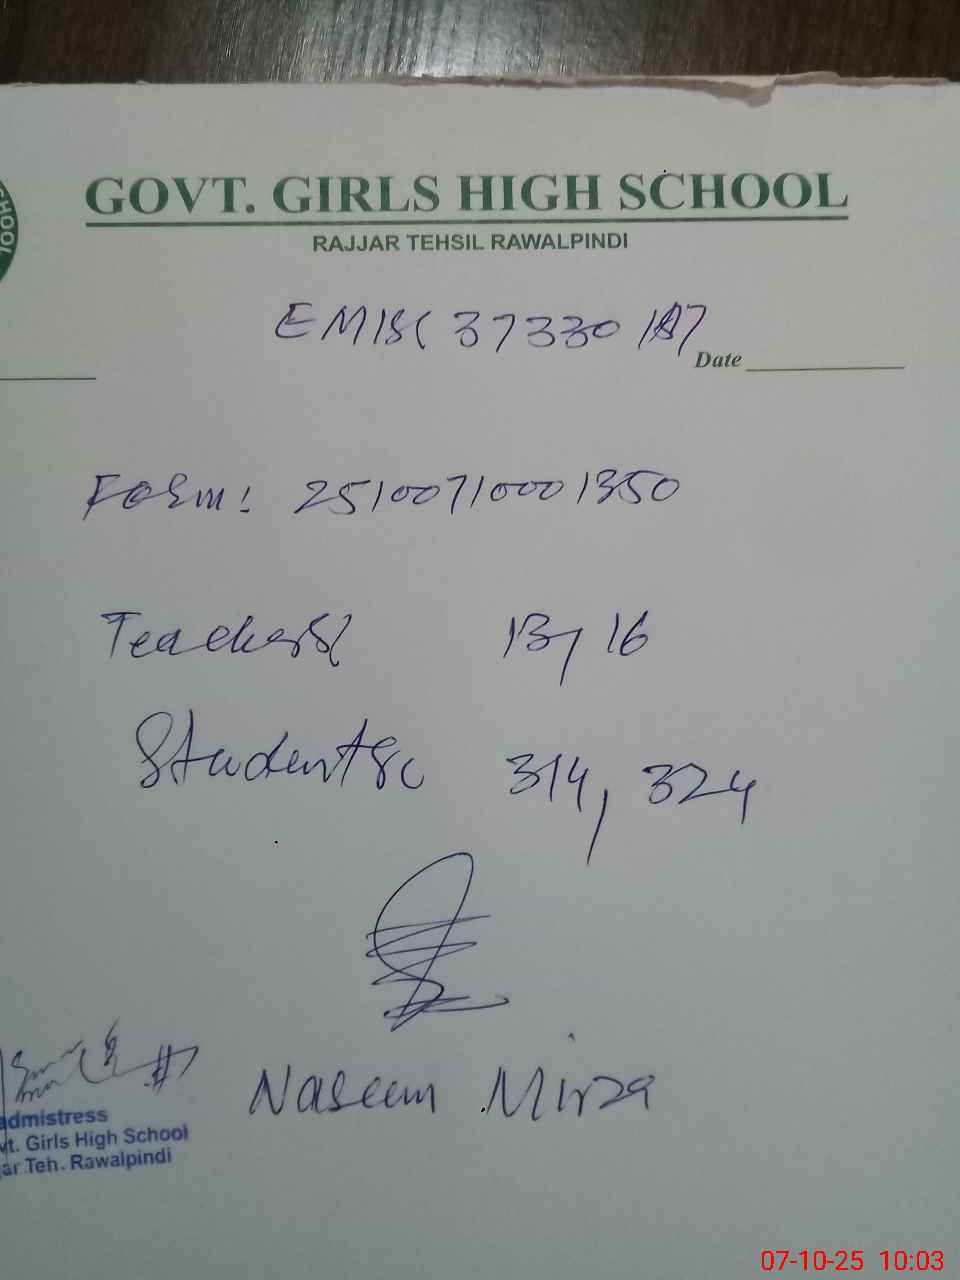 CHOOL
GOVT. GIRLS HIGH SCHOOL
RAJJAR TEHSIL RAWALPINDI
EMIS: 37330
Date
Form: 25100710001350
Teachers: 13, 16
Students: 314, 324
Naseem Mirza
admistress
vt. Girls High School
jar Teh. Rawalpindi
07-10-25 10:03